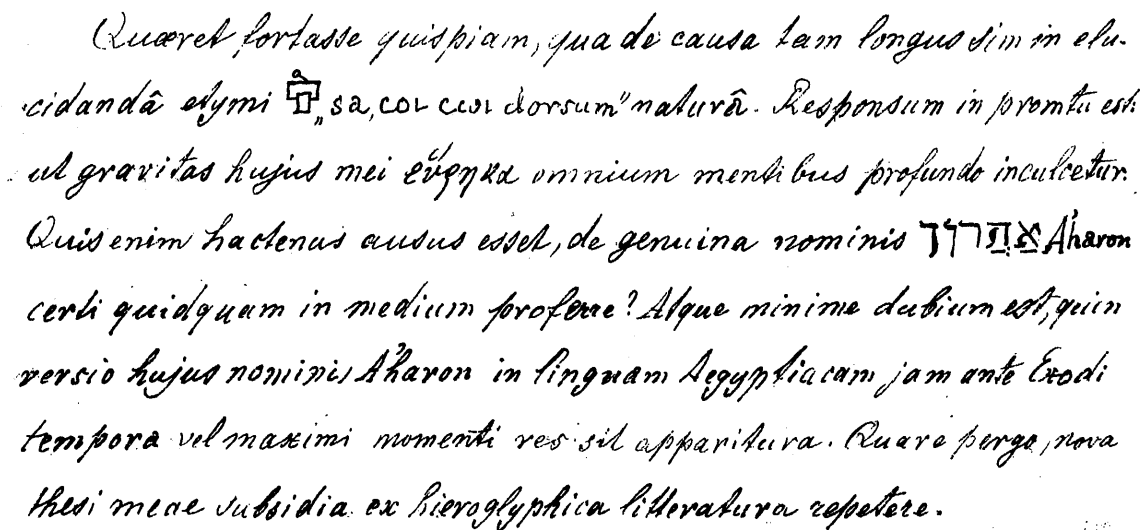 Quæret fortasse quispiam, qua de causa tam longus sim in elu-
cidandâ etymi „sa, ⲥⲟⲓ ⲥⲱⲓ dorsum" naturâ. Responsum in promtu est:
ut gravitas hujus mei εὕρηκα omnium mentibus profundo inculcetur.
Quis enim hactenus ausus esset, de genuina nominis Aʼharon
certi quidquam in medium proferre? Atque minime dubium est, quin
versio hujus nominis Aʼharon in linguam Aegyptiacam jam ante Exodi
tempora vel maximi momenti res sit apparitura. Quare pergo, nova
thesi meae subsidia ex hieroglyphica litteratura repetere.